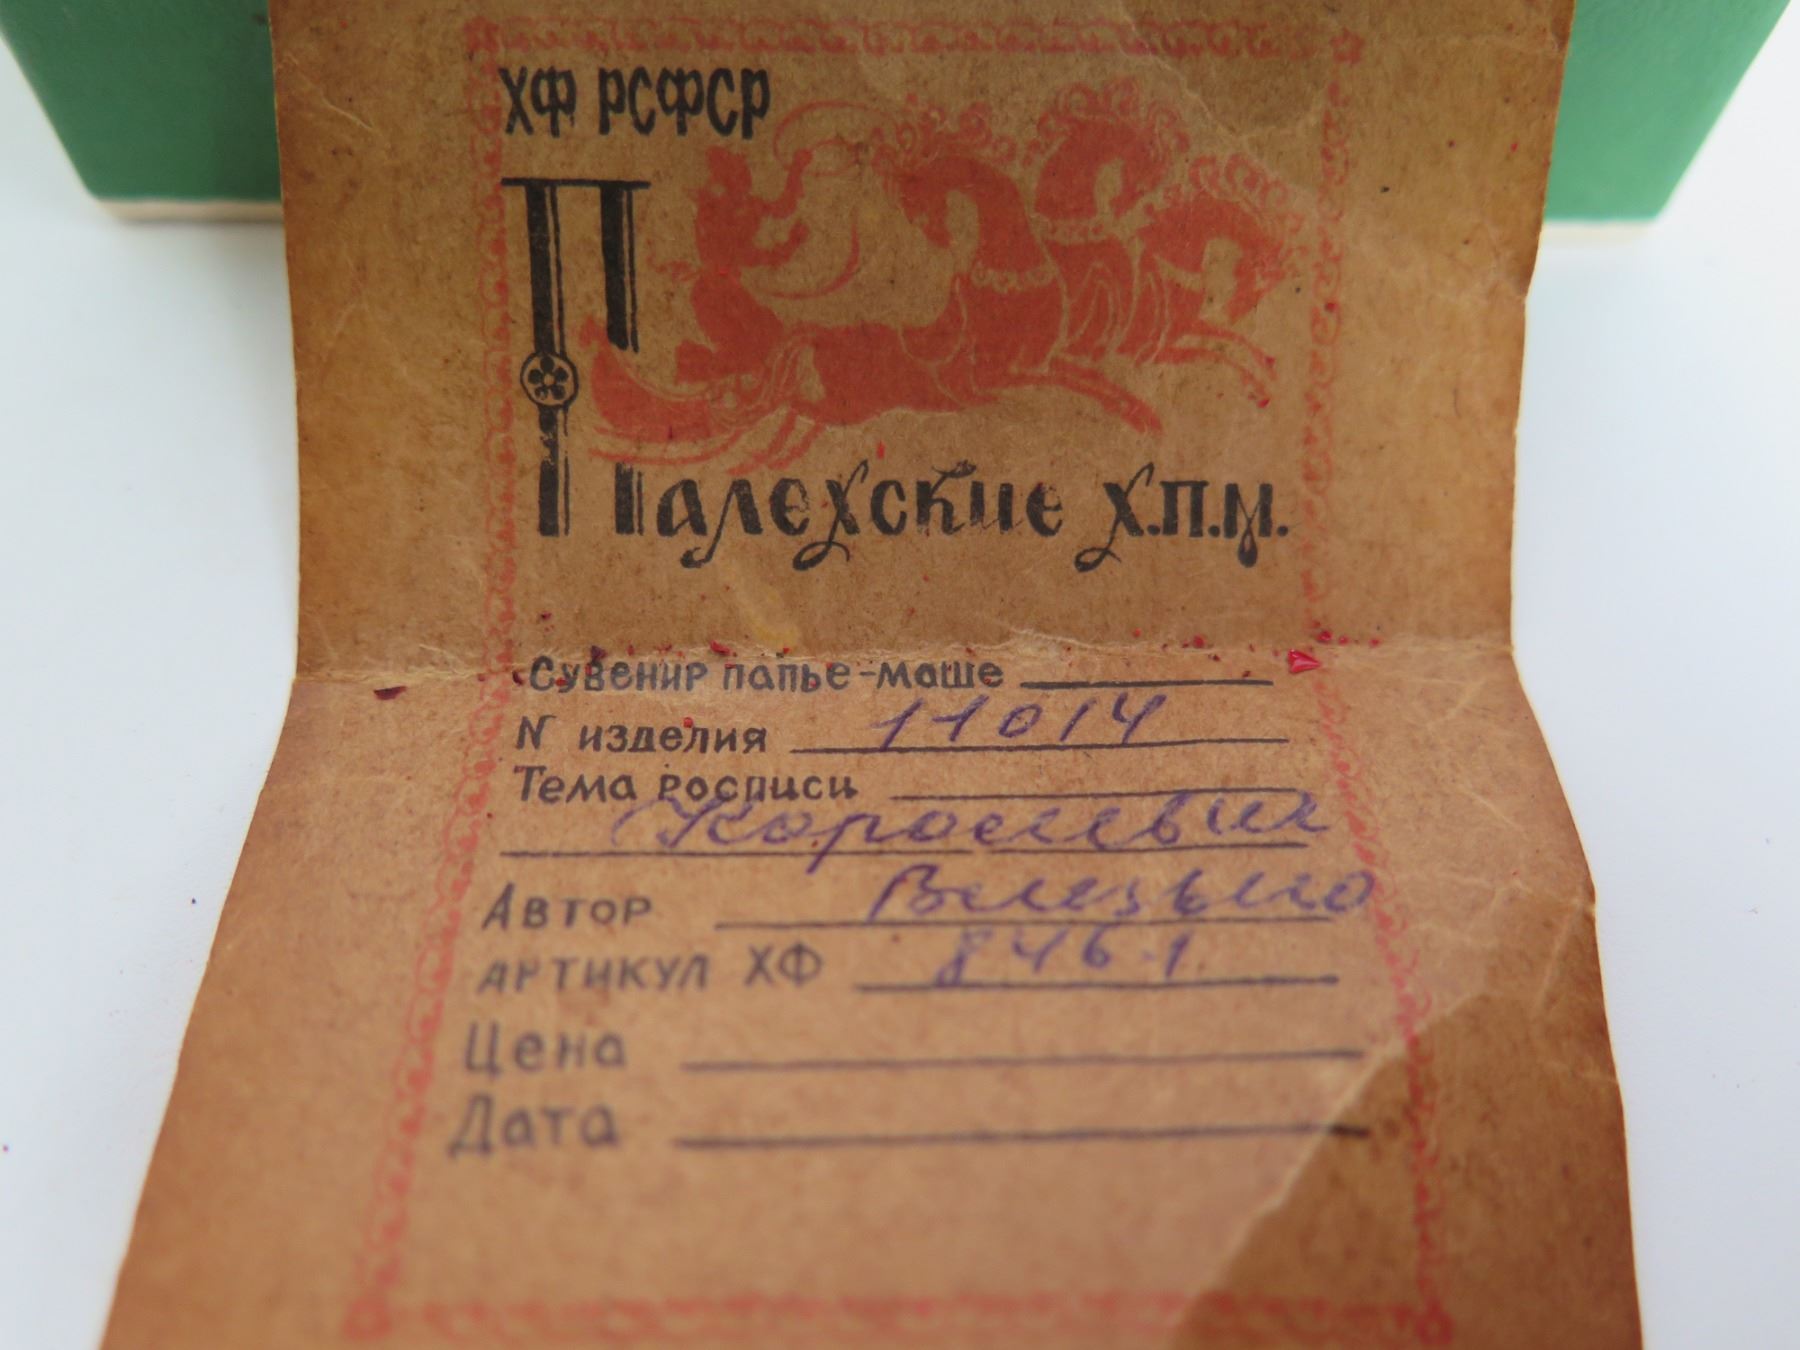 ХФ РСФСР
Палехские Х.П.М.
Сувенир папье-маше
N изделия 11014
Тема росписи
Королевич
Автор
АРТИКУЛ ХФ 846.1
Цена
Дата